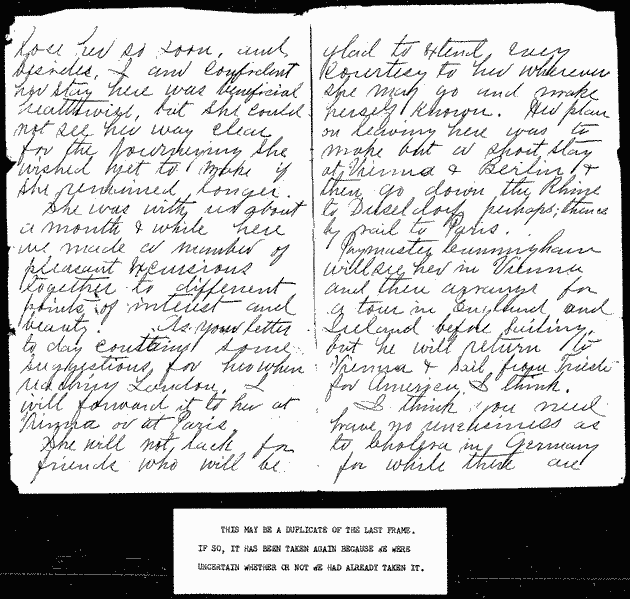 lose her so soon, and
besides, I am confident
her stay here was beneficial
healthwise, but she could
not see her way clear
for the journeying she
wished yet to make if
she remained longer.
She was with us about
a month & while here
we made a number of
pleasant excursions
together to different
points of interest and
beauty. As your letter
to day contains some
suggestions for her when
reaching London, I
will forward it to her at
Vienna or at Paris.
She will not lack for
friends who will be
glad to extend every
courtesy to her wherever
she may go and make
herself known. Her plan
on leaving here was to
make but a short stay
at Vienna & Berlin &
then go down the Rhine
to Dusseldorf perhaps; thence
by rail to Paris.
Paymaster Cunningham
will see her in Vienna
and then arrange for
a tour in England and
Ireland before sailing,
but he will return to
Vienna & sail from Trieste
for America, I think.
I think you need
have no uneasiness as
to Cholera in Germany
for while there are
THIS MAY BE A DUPLICATE OF THE LAST FRAME.
IF SO, IT HAS BEEN TAKEN AGAIN BECAUSE WE WERE
UNCERTAIN WHETHER OR NOT WE HAD ALREADY TAKEN IT.